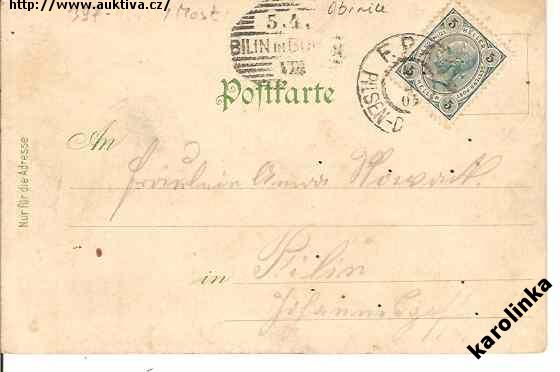 http://www.auktiva.cz/
Most
Obrnice
5.4.
BILIN in BÖ
Postkarte
F.P.
PILSEN-D
5
5
5
5
HELLER
HELLER
Nur für die Adresse
An
Fräulein Anna Nowack.
in Bilin
karolinka